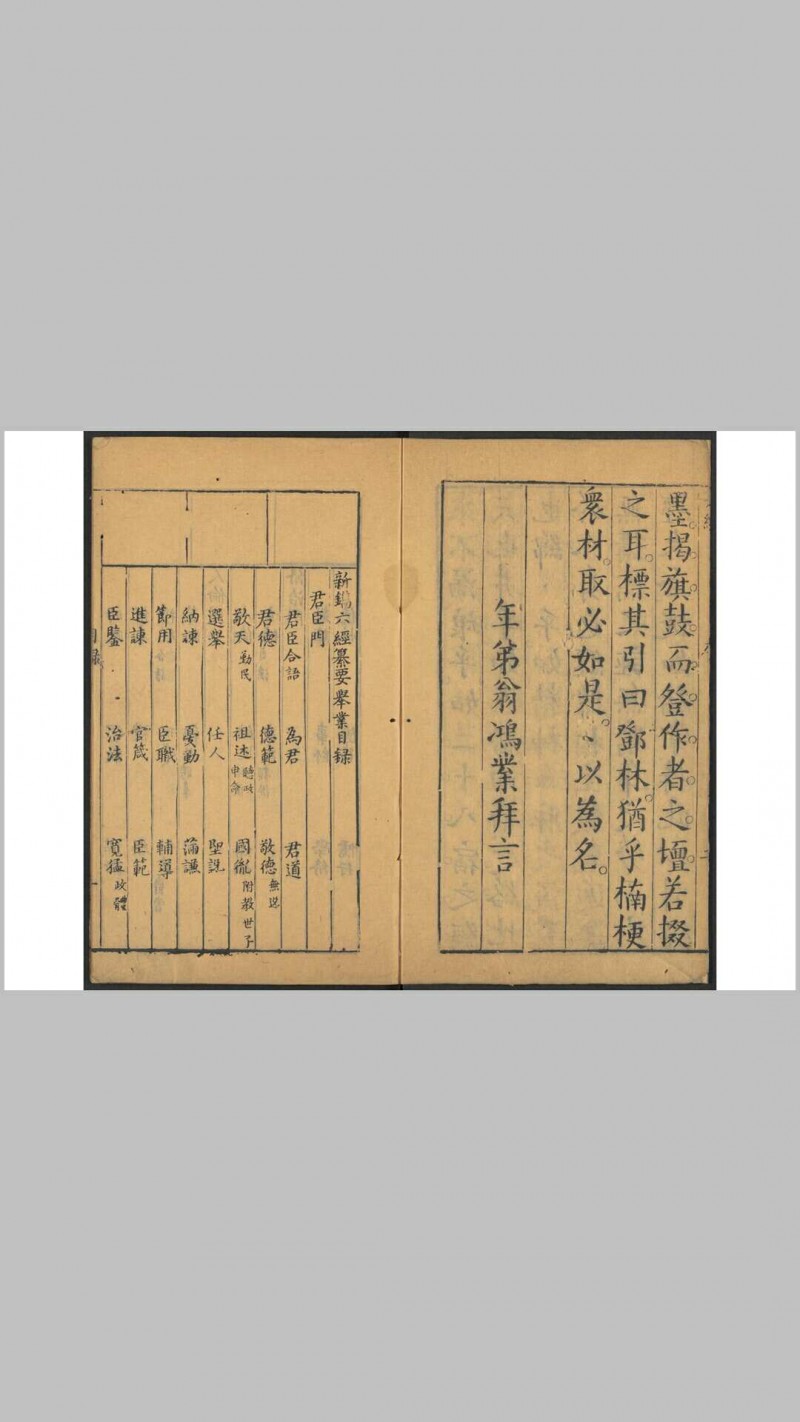 墨揭旗鼓而登作者之壇若掇
之耳。標其引曰鄧林。猶乎楠梗
衆材。取必如是。丶以為名。
年第翁鴻業拜言
新鐫六經纂要舉業目録
君臣門
君臣合語 為君 君道
君德 德範 敬德無逸
敬天勤民 祖述 國儀附殺世子
選舉 任人
納諫 憂勤
節用 臣職 輔導
進諫 官箴 臣範
臣鑒 治法 寬猛政體